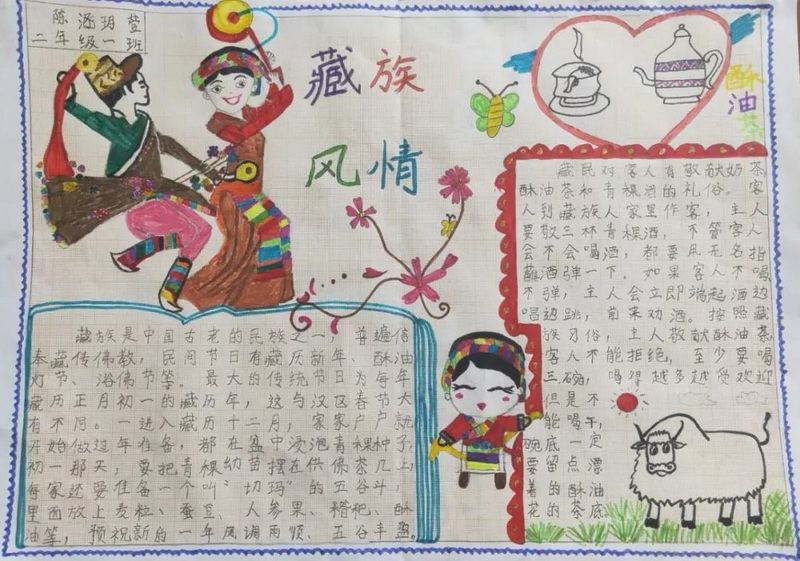 陈涵玥萱
二年级一班
藏族
风情
酥油茶
藏族是中国古老的民族之一，普遍信
奉藏传佛教，民间节日有藏历新年、酥油
灯节、浴佛节等。最大的传统节日为每年
藏历正月初一的藏历年，这与汉区春节大
有不同。一进入藏历十二月，家家户户就
开始做过年准备，都在盆中浸泡青稞种子，
初一那天，要把青稞幼苗摆在供佛茶几上，
每家还要准备一个叫“切玛”的五谷斗，
里面放上麦粒、蚕豆、人参果、糌粑、酥
油等，预祝新的一年风调雨顺、五谷丰盈。
藏民对客人有敬献奶茶、
酥油茶和青稞酒的礼俗。客
人到藏族人家里作客，主人
要敬三杯青稞酒，不管客人
会不会喝酒，都要用无名指
蘸酒弹一下。如果客人不喝
不弹，主人会立即端起酒边
唱边跳，前来劝酒。按照藏
族习俗，主人敬献酥油茶，
客人不能拒绝，至少要喝
三碗，喝得越多越受欢迎
但是不
能喝干，
碗底一定
要留点漂
着的酥油
花的茶底